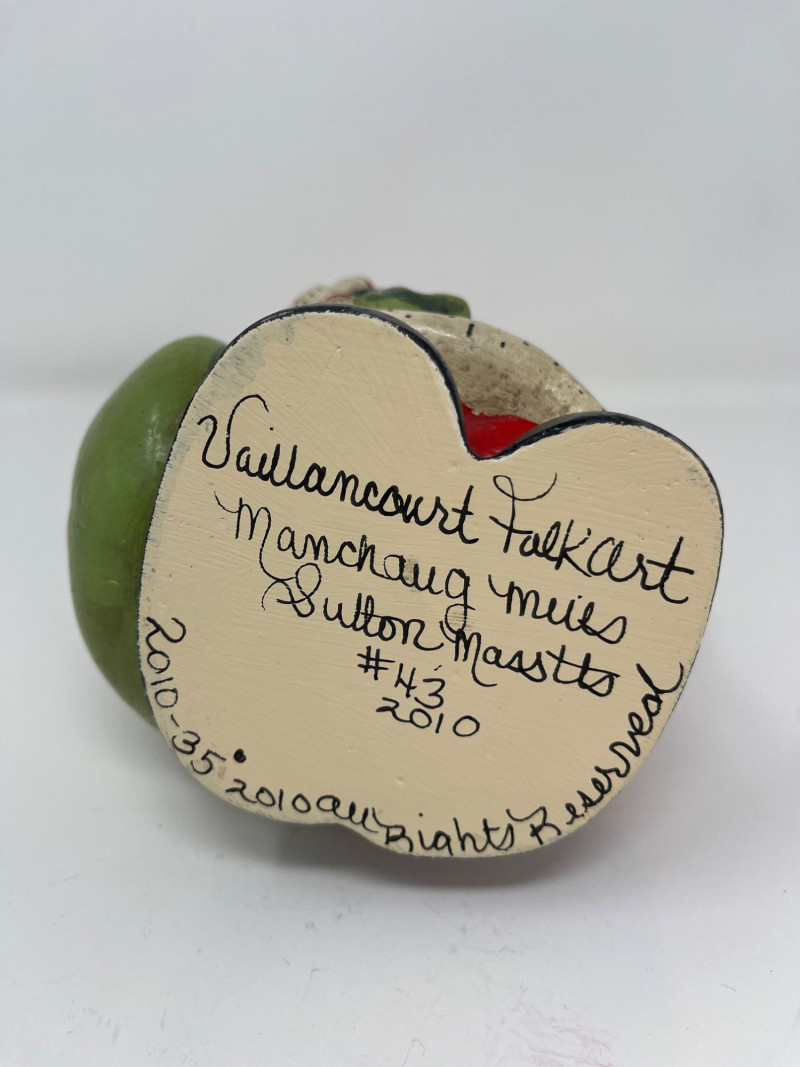 Vaillancourt Folk Art
Manchaug Mills
Sutton Masstts
#43
2010
2010-35 • 2010 All Rights Reserved